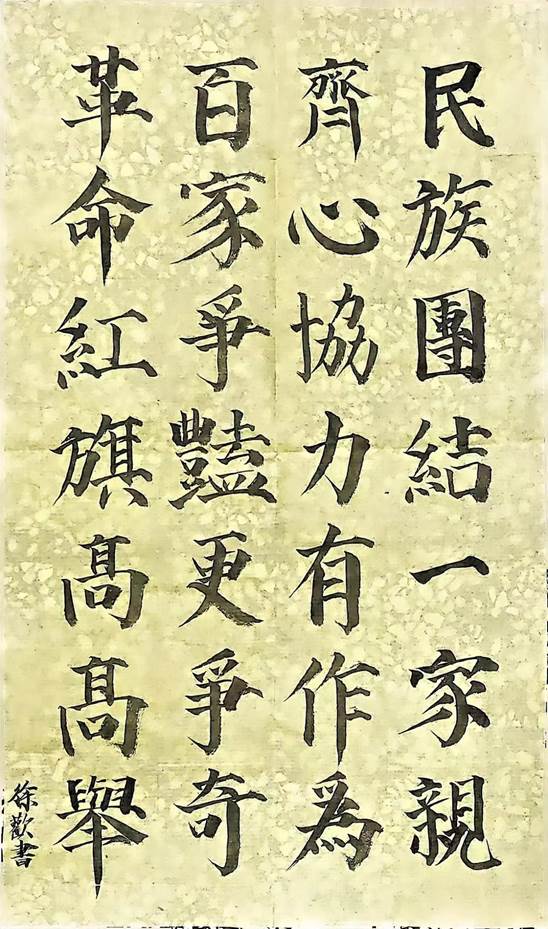 民族團結一家親
齊心協力有作為
百家爭豔更爭奇
革命紅旗髙髙舉
徐歡書